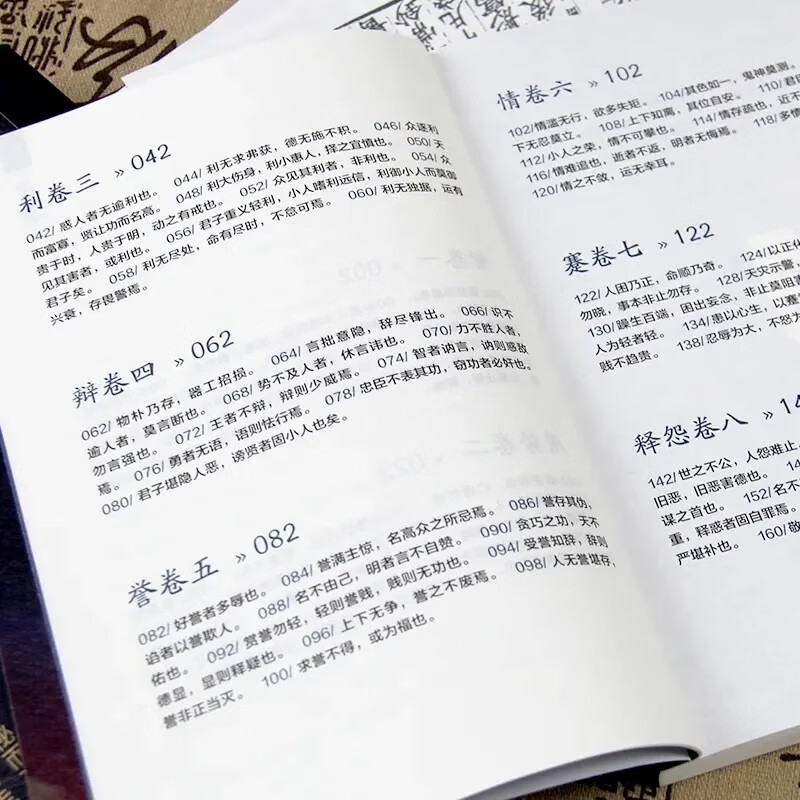 利卷三 » 042
042/ 惑人者无逾利也。 044/ 利无求弗获，德无施不积。 046/ 众逐利
而富寡，贤让功而名高。 048/ 利大伤身，利小惠人，择之宜慎也。 050/ 天
贵于时，人贵于明，动之有戒也。 052/ 众见其利者，非利也。 054/ 众
见其害者，或利也。 056/ 君子重义轻利，小人嗜利远信，利御小人而莫御
君子矣。 058/ 利无尽处，命有尽时，不怠可焉。 060/ 利无独据，运有
兴衰，存畏警焉。
辩卷四 » 062
062/ 物朴乃存，器工招损。 064/ 言拙意隐，辞尽锋出。 066/ 识不
逾人者，莫言断也。 068/ 势不及人者，休言讳也。 070/ 力不胜人者，
勿言强也。 072/ 王者不辩，辩则少威焉。 074/ 智者讷言，讷则惑敌
焉。 076/ 勇者无语，语则怯行焉。 078/ 忠臣不表其功，窃功者必奸也。
080/ 君子堪隐人恶，谤贤者固小人也矣。
誉卷五 » 082
082/ 好誉者多辱也。 084/ 誉满主惊，名高众之所忌焉。 086/ 誉存其伪，
谄者以誉欺人。 088/ 名不由己，明者言不自赞。 090/ 贪巧之功，天不
佑也。 092/ 赏誉勿轻，轻则誉贱，贱则无功也。 094/ 受誉知辞，辞则
德显，显则释疑也。 096/ 上下无争，誉之不废焉。 098/ 人无誉堪存，
誉非正当灭。 100/ 求誉不得，或为福也。
情卷六 » 102
102/ 情滥无行，欲多失矩。 104/ 其色如一，鬼神莫测。
下无忍莫立。 108/ 上下知离，其位自安。 110/ 君臣
112/ 小人之荣，情不可攀也。 114/ 情存疏也，近不
116/ 情难追也，逝者不返，明者无悔焉。 118/ 多情
120/ 情之不敛，运无幸耳。
蹇卷七 » 122
122/ 人困乃正，命顺乃奇。 124/ 以正化
勿晓，事本非止勿存。 128/ 天灾示警，
130/ 躁生百端，困出妄念，非止莫阻害
人为轻者轻。 134/ 患以心生，以蹇
贱不趋贵。 138/ 忍辱为大，不怒为
释怨卷八 » 14
142/ 世之不公，人怨难止
旧恶，旧恶害德也。
谋之首也。 152/ 名不
重，释惑者固自罪焉。
严堪补也。 160/ 敬